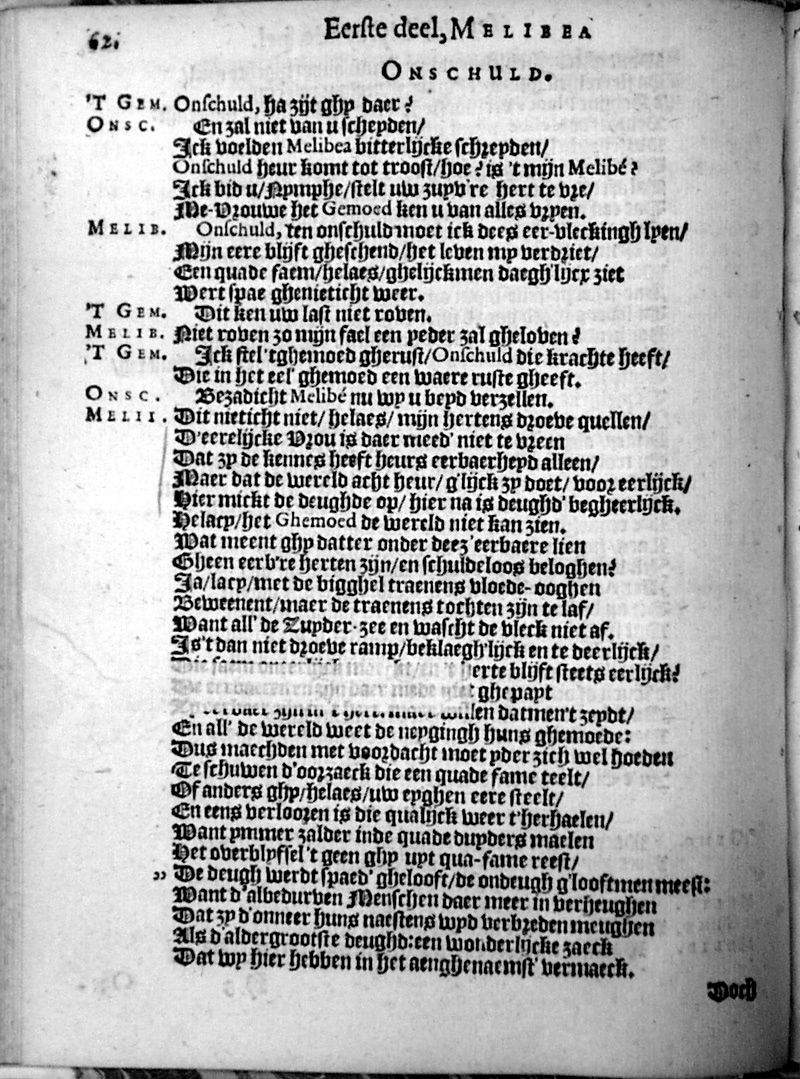 62.
Eerste deel, MELIBEA
ONSCHULD.
'T GEM. Onschuld, ha zijt ghy daer?
ONSC. En zal niet van u scheyden/
Ick voelden Melibea bitterlijcke schreyden/
Onschuld heur komt tot troost/hoe? is 't mijn Melibé?
Ick bid u/Nymphe/stelt uw zuyv're hert te vre/
Me-Vrouwe het Gemoed ken u van alles vryen.
MELIB. Onschuld, ten onschuld moet ick dees eer-vleckingh lyen/
Mijn eere blijft gheschend/het leven my verdriet/
Een quade faem/helaes/ghelijckmen daegh'lijcx ziet
Wert spae ghenieticht weer.
'T GEM. Dit ken uw last niet roven.
MELIB. Niet roven zo mijn fael een yeder zal gheloven?
'T GEM. Ick stel 'tghemoed gherust/Onschuld die krachte heeft/
Die in het eel' ghemoed een waere ruste gheeft.
ONSC. Bezadicht Melibé nu wy u beyd verzellen.
MELII. Dit nieticht niet/ helaes/ mijn hertens droeve quellen/
D'eerelijcke Vrou is daer meed' niet te vreen
Dat zy de kennes heeft heurs eerbaerheyd alleen/
Maer dat de wereld acht heur/ g'lijck zy doet/ voor eerlijck/
Hier mickt de deughde op/ hier na is deughd' begheerlijck.
Helacy/het Ghemoed de wereld niet kan zien.
Wat meent ghy datter onder deez'eerbaere lien
Gheen eerb're herten zijn/en schuldeloos beloghen?
Ja/lacy/met de bigghel traenens vloede-ooghen
Beweenent/maer de traenens tochten zijn te laf/
Want all' de Zuyder-zee en wascht de vleck niet af.
Is't dan niet droeve ramp/beklaegh'lijck en te deerlijck/
erte blijft steets eerlijck?
ghepayt
datmen't zeydt/
En all' de wereld weet de neygingh huns ghemoede:
Dus maechden met voordacht moet yder zich wel hoeden
Te schuwen d'oorzaeck die een quade fame teelt/
Of anders ghy/helaes/uw eyghen eere steelt/
En eens verlooren is die qualijck weer t'herhaelen/
Want ymmer zalder inde quade duyders maelen
Het overblyfsel 't geen ghy uyt qua-fame reest/
,, De deugh werdt spaed' ghelooft/de ondeugh g'looftmen meest:
Want d'albedurven Menschen daer meer in verheughen
Dat zy d'onneer huns naestens wyd verbreden meughen
Als d'aldergrootste deughd: een wonderlijcke zaeck
Dat wy hier hebben in het aenghenaemst' vermaeck.
Doch